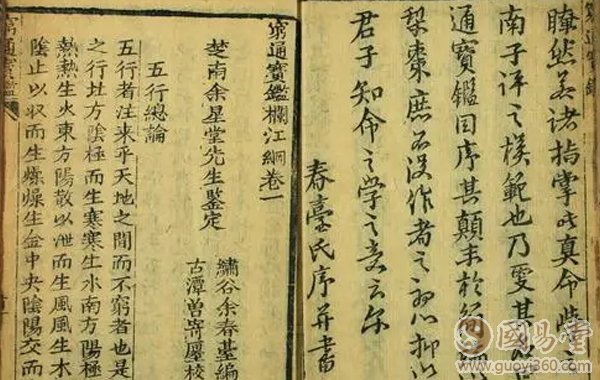 瞭然若諸指掌此真命學之
南子評之模範也乃更其
通寶鑑因序其顛末於簡
梨棗庶不沒作者之心抑以
君子知命之學之意云尔
春臺氏序并書
窮通寶鑑欄江網卷一
楚南余星堂先生鑒定
繡谷余春臺編
古潭曾寄廛校
五行總論
五行者注来乎天地之間而不窮者也是
之行北方陰極而生寒寒生水南方陽極
熱熱生火東方陽散以泄而生風風生木
陰止以収而生燥燥生金中央陰陽交而
窮通寶鑑
國易堂
www.guoyi360.com